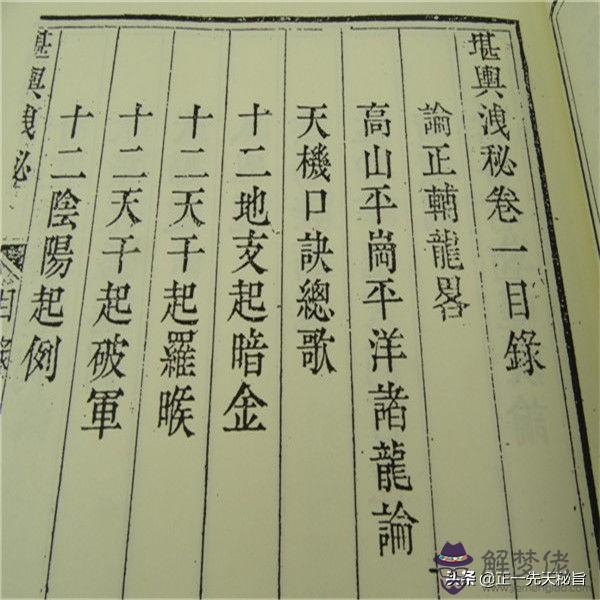 堪輿洩秘卷一目錄
論正輔龍畧
高山平崗平洋諸龍論
天機口訣總歌
十二地支起暗金
十二天干起羅睺
十二天干起破軍
十二陰陽起例
堪輿洩秘
目錄
解梦佬
www.jiemenglao.com
头条 @正一先天秘旨